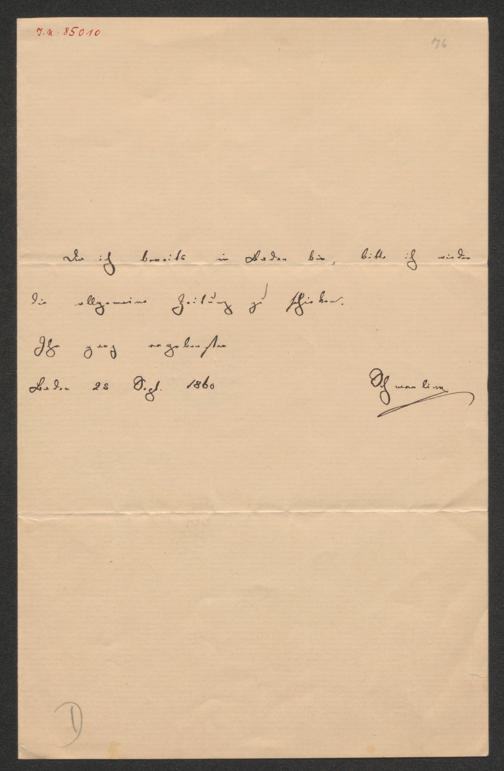 J.N. 85010
76
Da ich bereits in Baden bin, bitte ich wieder
die allgemeine Zeitung zu schicken.
Ihr ganz ergebenster
Baden 28 Sept. 1860